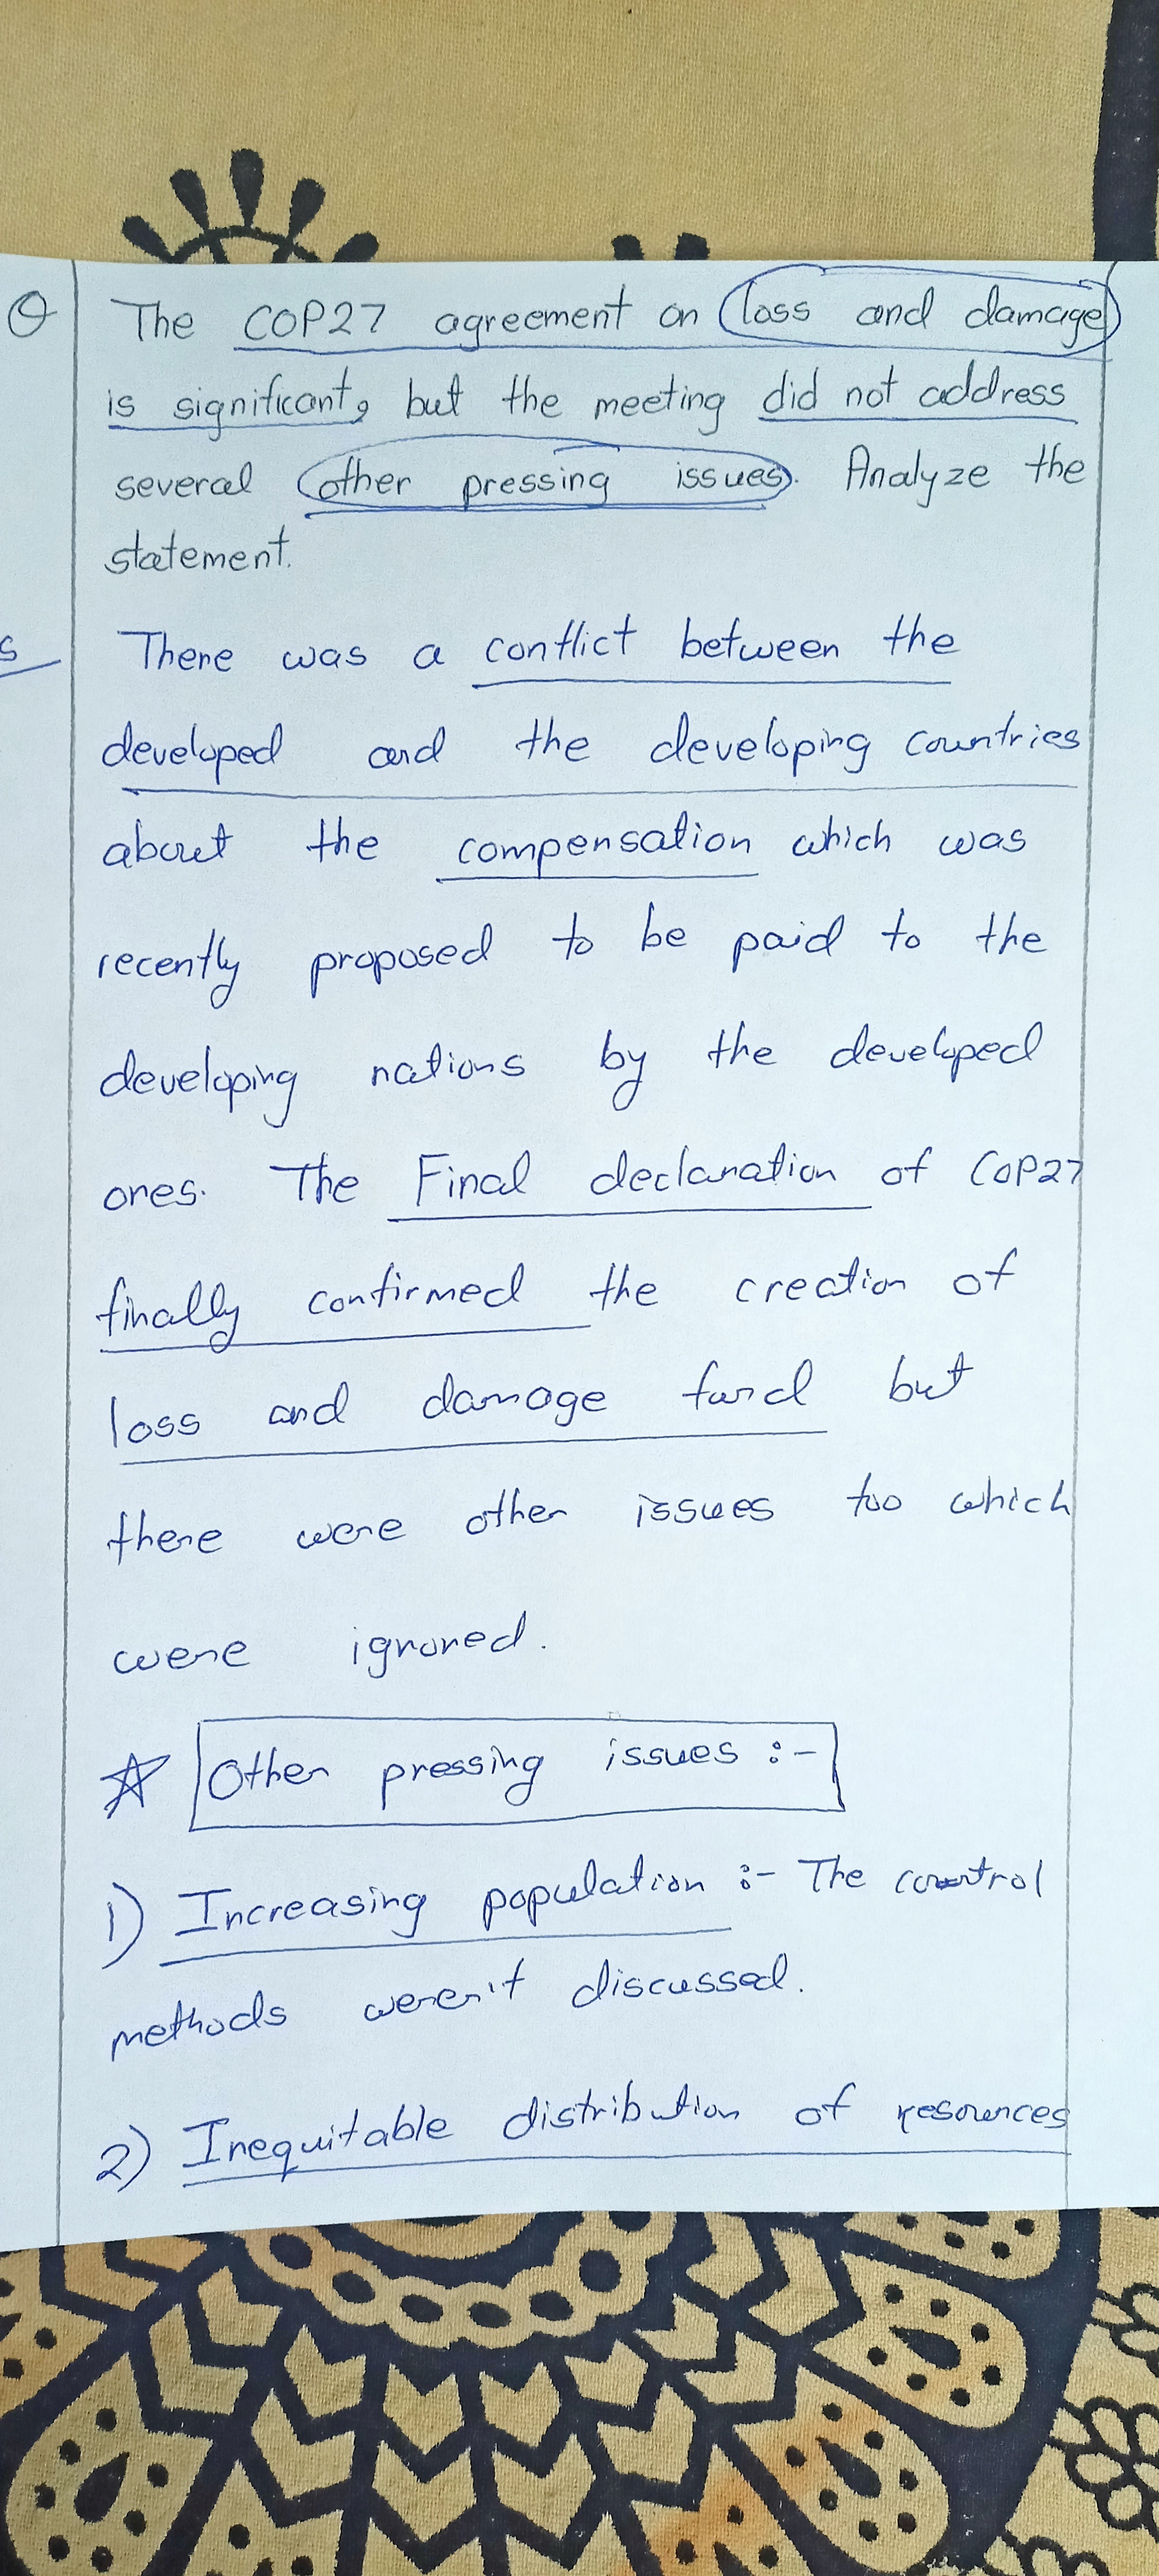 Q The COP27 agreement on loss and damage
is significant, but the meeting did not address
several other pressing issues. Analyze the
statement.
s There was a conflict between the
developed and the developing countries
about the compensation which was
recently proposed to be paid to the
developing nations by the developed
ones. The Final declaration of COP27
finally confirmed the creation of
loss and damage fund but
there were other issues too which
were ignored.
☆ Other pressing issues :-
1) Increasing population :- The control
methods weren't discussed.
2) Inequitable distribution of resources